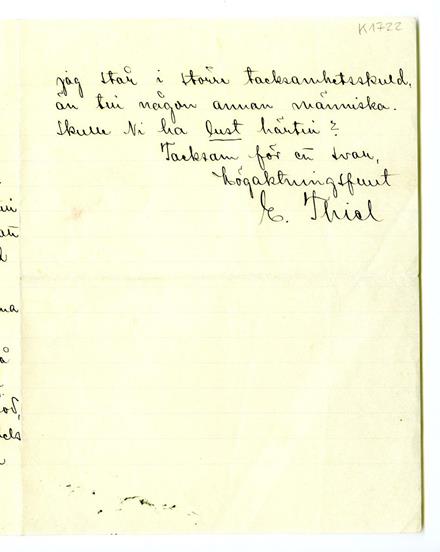 K1722
jag står i större tacksamhetsskuld,
än till någon annan människa.
Skulle Ni ha lust härtill?
Tacksam för ett svar,
Högaktningsfullt
E. Thiel